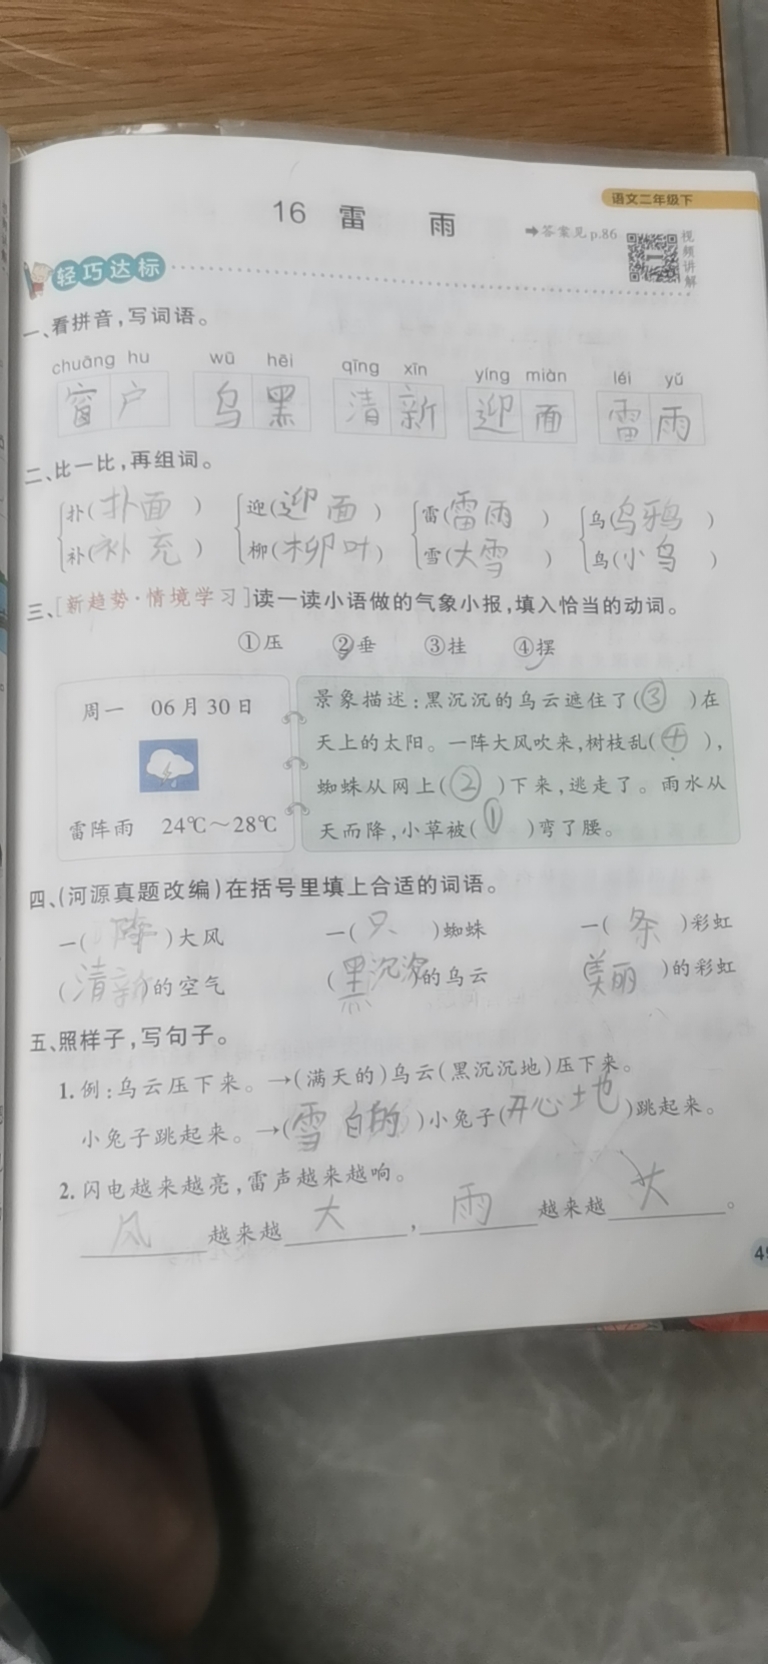 语文二年级下
16 雷 雨
➡答案见p.86
视频讲解
轻巧达标
一、看拼音,写词语。
chuāng hu wū hēi qīng xīn yíng miàn léi yǔ
窗户 乌黑 清新 迎面 雷雨
二、比一比,再组词。
扑(扑面) 迎(迎面) 雷(雷雨) 乌(乌鸦)
补(补充) 柳(柳叶) 雪(大雪) 鸟(小鸟)
三、[新趋势·情境学习]读一读小语做的气象小报,填入恰当的动词。
①压 ②垂 ③挂 ④摆
周一 06月30日
雷阵雨 24℃～28℃
景象描述:黑沉沉的乌云遮住了(③)在
天上的太阳。一阵大风吹来,树枝乱(④),
蜘蛛从网上(②)下来,逃走了。雨水从
天而降,小草被(①)弯了腰。
四、(河源真题改编)在括号里填上合适的词语。
一(阵)大风 一(只)蜘蛛 一(条)彩虹
(清新)的空气 (黑沉沉的乌云 美丽)的彩虹
五、照样子,写句子。
1. 例:乌云压下来。→(满天的)乌云(黑沉沉地)压下来。
小兔子跳起来。→(雪白的)小兔子(开心地)跳起来。
2. 闪电越来越亮,雷声越来越响。
风越来越大,雨越来越大。